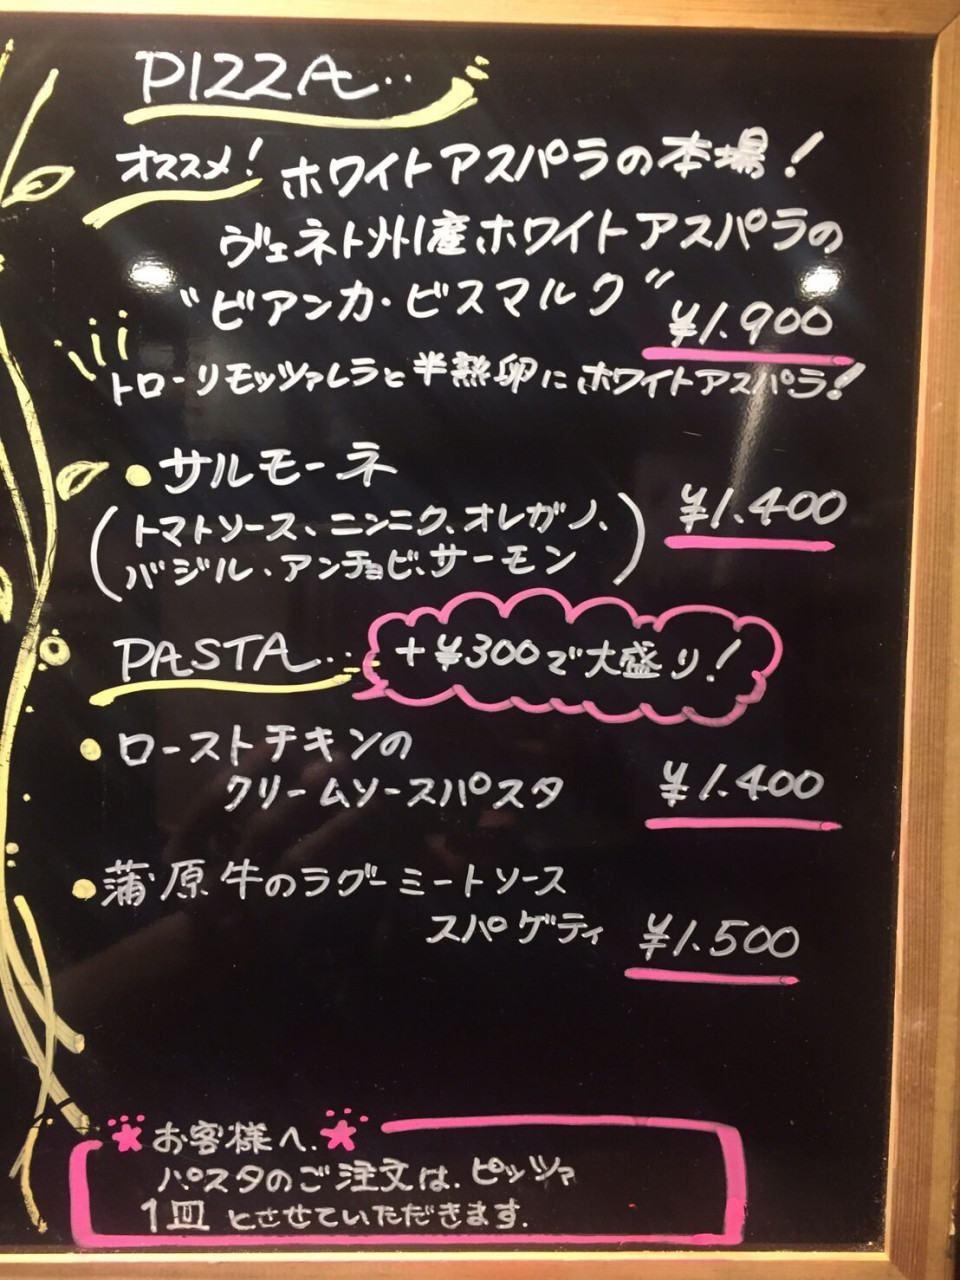 PIZZA..
オススメ! ホワイトアスパラの本場!
ヴェネト州産ホワイトアスパラの
"ビアンカ・ビスマルク" ¥1.900
トローリモッツァレラと半熟卵にホワイトアスパラ!
・サルモーネ
(トマトソース、ニンニク、オレガノ、
バジル、アンチョビ、サーモン) ¥1.400
PASTA... +¥300で大盛り!
・ローストチキンの
クリームソースパスタ ¥1.400
・蒲原牛のラグーミートソース
スパゲティ ¥1.500
お客様へ.
パスタのご注文は、ピッツァ
1皿とさせていただきます.